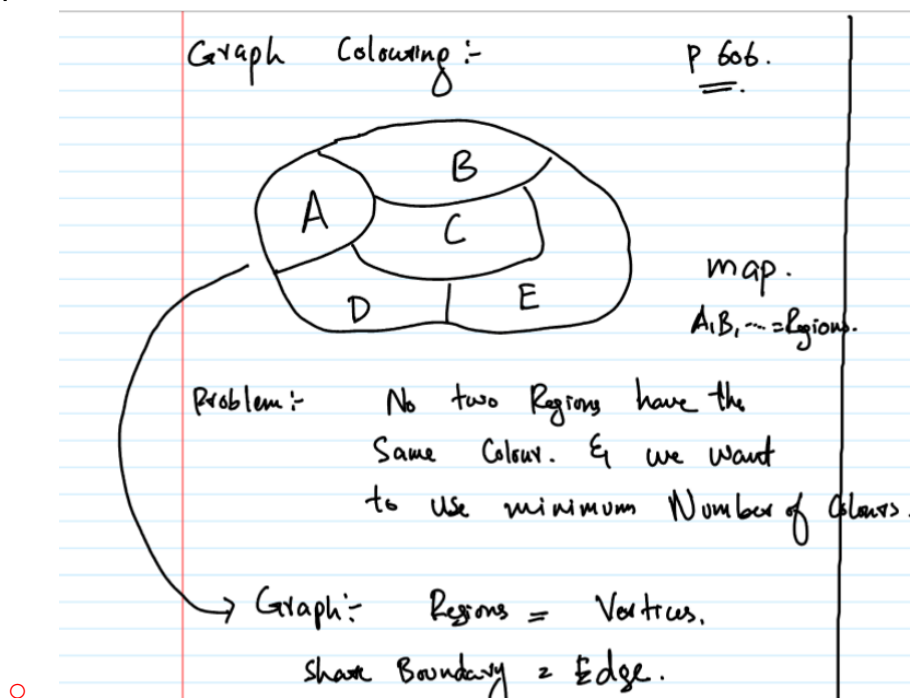 Graph Colouring :- P 606.
B
A
C
D
E
map.
A,B, --- = Regions.
Problem :- No two Regions have the
Same Colour. & we want
to use minimum Number of Colours.
Graph :- Regions = Vertices.
Share Boundary = Edge.